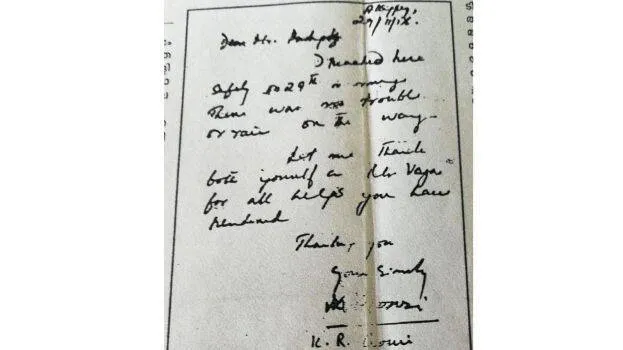 Alleppey,
29/11/
Dear Mr.
I reached here
safely on 29th in
There was no trouble
or rain on the way.
Let me Thank
both yourself
for all helps you have
rendered
Thanking you
Yours Sincerely
K. R.